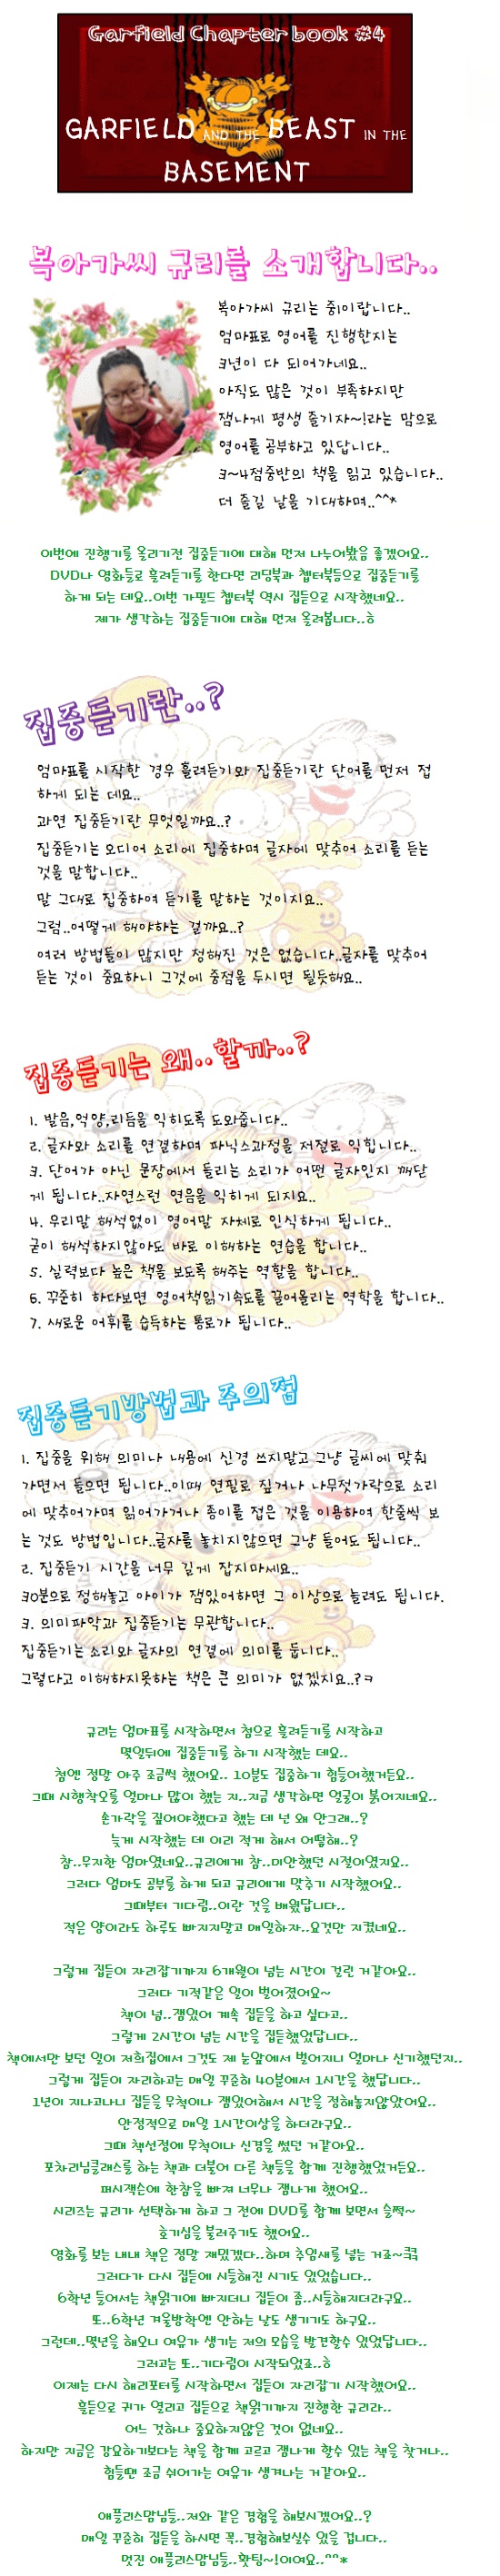 Garfield Chapter book #4
GARFIELD AND THE BEAST IN THE
BASEMENT
복아가씨 규리를 소개합니다..
복아가씨 규리는 중1이랍니다..
엄마표로 영어를 진행한지는
3년이 다 되어가네요..
아직도 많은 것이 부족하지만
잼나게 평생 즐기자~!라는 맘으로
영어를 공부하고 있답니다..
3~4점중반의 책을 읽고 있습니다..
더 즐길 날을 기대하며..^^*
이번에 진행기를 올리기전 집중듣기에 대해 먼저 나누어봤음 좋겠어요..
DVD나 영화들로 흘려듣기를 한다면 리딩북과 쳅터북등으로 집중듣기를
하게 되는 데요..이번 가필드 쳅터북 역시 집듣으로 시작했네요..
제가 생각하는 집중듣기에 대해 먼저 올려봅니다..ㅎ
집중듣기란..?
엄마표를 시작한 경우 흘려듣기와 집중듣기란 단어를 먼저 접
하게 되는 데요..
과연 집중듣기란 무엇일까요..?
집중듣기는 오디어 소리에 집중하며 글자에 맞추어 소리를 듣는
것을 말합니다..
말 그대로 집중하여 듣기를 말하는 것이지요..
그럼..어떻게 해야하는 걸까요..?
여러 방법들이 많지만 정해진 것은 없습니다..글자를 맞추어
듣는 것이 중요하니 그것에 중점을 두시면 될듯해요..
집중듣기는 왜..할까..?
1. 발음,억양,리듬을 익히도록 도와줍니다..
2. 글자와 소리를 연결하며 파닉스과정을 저절로 익힙니다..
3. 단어가 아닌 문장에서 들리는 소리가 어떤 글자인지 깨닫
게 됩니다..자연스런 연음을 익히게 되지요..
4. 우리말 해석없이 영어말 자체로 인식하게 됩니다..
굳이 해석하지않아도 바로 이해하는 연습을 합니다..
5. 실력보다 높은 책을 보도록 해주는 역할을 합니다..
6. 꾸준히 하다보면 영어책읽기속도를 끌어올리는 역학을 합니다..
7. 새로운 어휘를 습득하는 통로가 됩니다..
집중듣기방법과 주의점
1. 집중을 위해 의미나 내용에 신경 쓰지말고 그냥 글씨에 맞춰
가면서 들으면 됩니다..이때 연필로 짚거나 나무젓가락으로 소리
에 맞추어가며 읽어가거나 종이를 접은 것을 이용하여 한줄씩 보
는 것도 방법입니다..글자를 놓치지않으면 그냥 들어도 됩니다..
2. 집중듣기 시간을 너무 길게 잡지마세요..
30분으로 정해놓고 아이가 잼있어하면 그 이상으로 늘려도 됩니다.
3. 의미파악과 집중듣기는 무관합니다..
집중듣기는 소리와 글자의 연결에 의미를 둡니다..
그렇다고 이해하지못하는 책은 큰 의미가 없겠지요..?ㅋ
규리는 엄마표를 시작하면서 첨으로 흘려듣기를 시작하고
몇일뒤에 집중듣기를 하기 시작했는 데요..
첨엔 정말 아주 조금씩 했어요.. 10분도 집중하기 힘들어했거든요..
그때 시행착오를 얼마나 많이 했는 지..지금 생각하면 얼굴이 붉어지네요..
손가락을 짚어야했다고 했는 데 넌 왜 안그래..?
늦게 시작했는 데 이리 적게 해서 어떨해..?
참..무지한 엄마였네요..규리에게 참..미안했던 시절이였지요..
그러다 엄마도 공부를 하게 되고 규리에게 맞추기 시작했어요..
그때부터 기다림..이란 것을 배웠답니다..
적은 양이라도 하루도 빠지지말고 매일하자..요것만 지켰네요..
그렇게 집듣이 자리잡기까지 6개월이 넘는 시간이 걸린 거같아요..
그러다 기적같은 일이 벌어졌어요~
책이 넘..잼있어 계속 집듣을 하고 싶다고..
그렇게 2시간이 넘는 시간을 집듣했었답니다..
책에서만 보던 일이 저희집에서 그것도 제 눈앞에서 벌어지니 얼마나 신기했던지..
그렇게 집듣이 자리하고는 매일 꾸준히 40분에서 1시간을 했답니다..
1년이 지나고나니 집듣을 무척이나 잼있어해서 시간을 정해놓지않았어요..
안정적으로 매일 1시간이상을 하더라구요..
그때 책선정에 무척이나 신경을 썼던 거같아요..
포차리님클래스를 하는 책과 더불어 다른 책들을 함께 진행했었거든요..
퍼시잭슨에 한참을 빠져 너무나 잼나게 했어요..
시리즈는 규리가 선택하게 하고 그 전에 DVD를 함께 보면서 슬쩍~
호기심을 불러주기도 했어요..
영화를 보는 내내 책은 정말 재밌겠다..하며 추임새를 넣는 거죠~ㅋㅋ
그러다가 다시 집듣에 시들해진 시기도 있었습니다..
6학년 들어서는 책읽기에 빠지더니 집듣이 좀..시들해지더라구요..
또..6학년 겨울방학엔 안하는 날도 생기기도 하구요..
그런데..몇년을 해오니 여유가 생기는 저의 모습을 발견할수 있었답니다..
그러고는 또..기다림이 시작되었죠..ㅎ
이제는 다시 해리포터를 시작하면서 집듣이 자리잡기 시작했어요..
흘듣으로 귀가 열리고 집듣으로 책읽기까지 진행한 규리라..
어느 것하나 중요하지않을 것이 없네요..
하지만 지금은 강요하기보다는 책을 함께 고르고 잼나게 할수 있는 책을 찾거나..
힘들땐 조금 쉬어가는 여유가 생겨나는 거같아요..
애플리스맘님들..저와 같은 경험을 해보시겠어요..?
매일 꾸준히 집듣을 하시면 꼭..경험해보실수 있을 겁니다..
멋진 애플리스맘님들..홧팅~!이여요..^^*